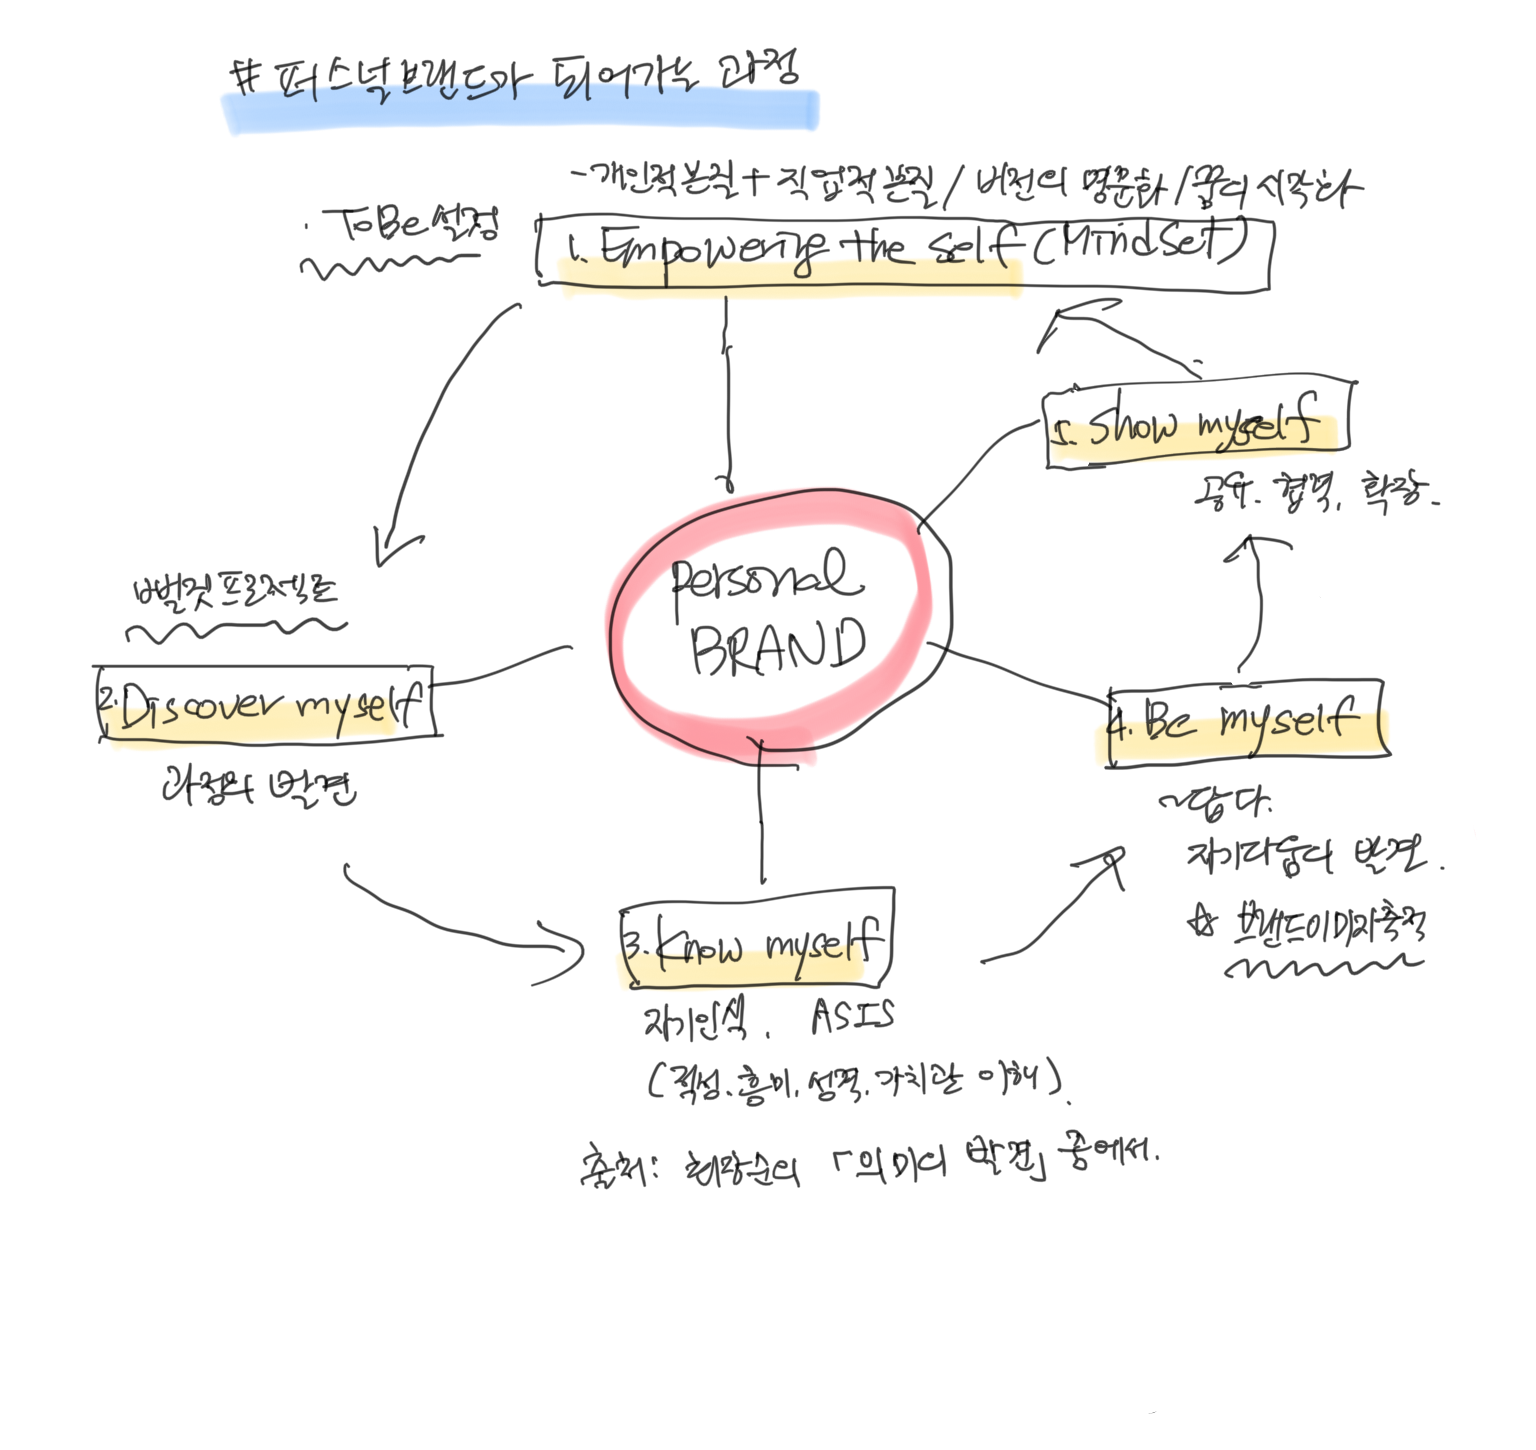 # 퍼스널브랜드가 되어가는 과정
- 개인적본질 + 직업적본질 / 비전의 명문화 / 꿈의 시각화
· ToBe설정
1. Empowering the self (Mindset)
5. Show myself
공유. 협력. 확장.
personal
BRAND
빼벌젓프로젝트
2. Discover myself
과정의 발견
4. Be myself
~답다.
자기다움의 발견.
☆ 브랜드이미지축적
3. Know myself
자기인식. ASIS
(적성. 흥미. 성격. 가치관 이해).
출처: 최장순의 「의미의 발견」 중에서.